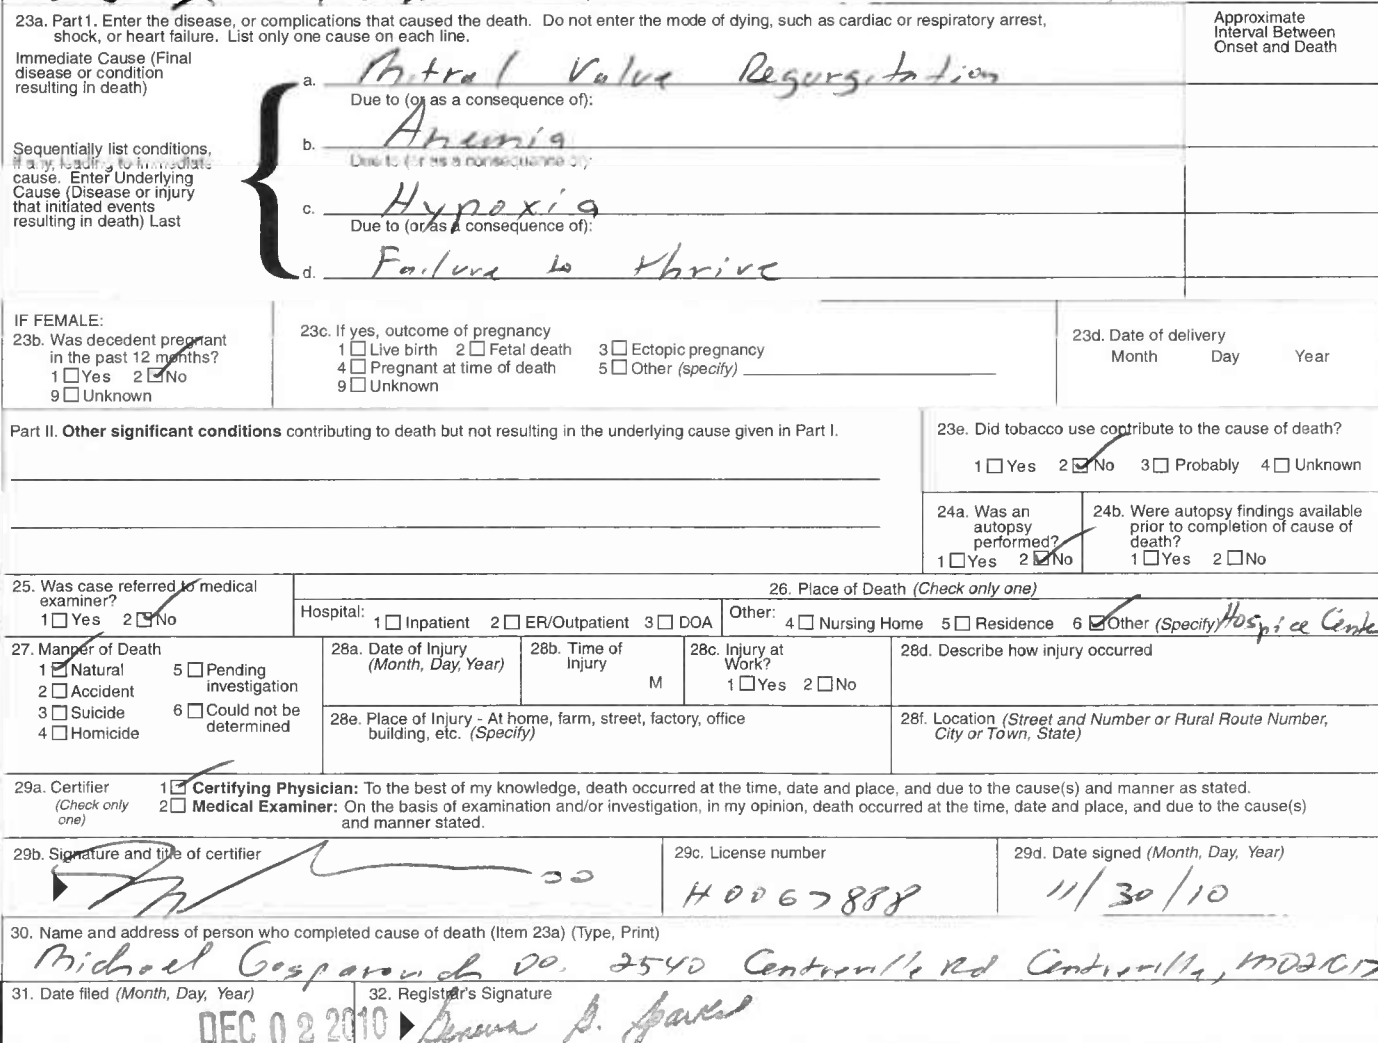 23a. Part 1. Enter the disease, or complications that caused the death. Do not enter the mode of dying, such as cardiac or respiratory arrest,
shock, or heart failure. List only one cause on each line.
Approximate
Interval Between
Onset and Death
Immediate Cause (Final
disease or condition
resulting in death)
a. Mitral Valve Regurgitation
Due to (or as a consequence of):
b. Anemia
Due to (or as a consequence of):
Sequentially list conditions,
if any, leading to immediate
cause. Enter Underlying
Cause (Disease or injury
that initiated events
resulting in death) Last
c. Hypoxia
Due to (or as a consequence of):
d. Failure to thrive
IF FEMALE:
23b. Was decedent pregnant
in the past 12 months?
1 ☐ Yes 2 ☑ No
9 ☐ Unknown
23c. If yes, outcome of pregnancy
1 ☐ Live birth 2 ☐ Fetal death 3 ☐ Ectopic pregnancy
4 ☐ Pregnant at time of death 5 ☐ Other (specify)
9 ☐ Unknown
23d. Date of delivery
Month Day Year
Part II. Other significant conditions contributing to death but not resulting in the underlying cause given in Part I.
23e. Did tobacco use contribute to the cause of death?
1 ☐ Yes 2 ☑ No 3 ☐ Probably 4 ☐ Unknown
24a. Was an
autopsy
performed?
1 ☐ Yes 2 ☑ No
24b. Were autopsy findings available
prior to completion of cause of
death?
1 ☐ Yes 2 ☐ No
25. Was case referred to medical
examiner?
1 ☐ Yes 2 ☑ No
26. Place of Death (Check only one)
Hospital: 1 ☐ Inpatient 2 ☐ ER/Outpatient 3 ☐ DOA Other: 4 ☐ Nursing Home 5 ☐ Residence 6 ☑ Other (Specify) Hospice Cente
27. Manner of Death
1 ☑ Natural 5 ☐ Pending
investigation
2 ☐ Accident
3 ☐ Suicide 6 ☐ Could not be
determined
4 ☐ Homicide
28a. Date of Injury
(Month, Day, Year)
28b. Time of
Injury
M
28c. Injury at
Work?
1 ☐ Yes 2 ☐ No
28d. Describe how injury occurred
28e. Place of Injury - At home, farm, street, factory, office
building, etc. (Specify)
28f. Location (Street and Number or Rural Route Number,
City or Town, State)
29a. Certifier
(Check only
one)
1 ☑ Certifying Physician: To the best of my knowledge, death occurred at the time, date and place, and due to the cause(s) and manner as stated.
2 ☐ Medical Examiner: On the basis of examination and/or investigation, in my opinion, death occurred at the time, date and place, and due to the cause(s)
and manner stated.
29b. Signature and title of certifier
29c. License number
H0067888
29d. Date signed (Month, Day, Year)
11/30/10
30. Name and address of person who completed cause of death (Item 23a) (Type, Print)
Michael Gosparovich DO. 2540 Centreville Rd Centreville, MD
31. Date filed (Month, Day, Year)
DEC 02 2010
32. Registrar's Signature
Geneva B. Sparks